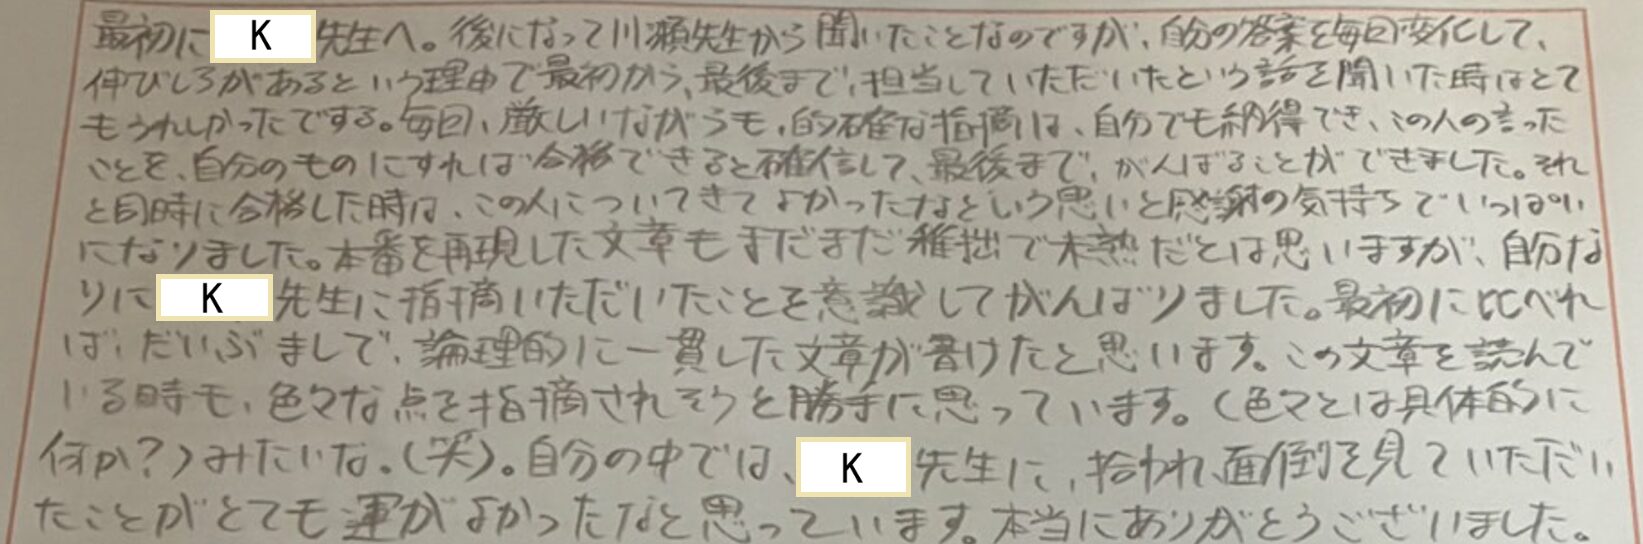 最初にK先生へ。後になって川瀬先生から聞いたことなのですが、自分の答案を毎回変化して、
伸びしろがあるという理由で最初から、最後まで、担当していただいたという話を聞いた時はとて
もうれしかったでする。毎回、厳しいながらも、的確な指摘は、自分でも納得でき、この人の言った
ことを、自分のものにすれば合格できると確信して、最後まで、がんばることができました。それ
と同時に合格した時は、この人についてきてよかったなという思いと感謝の気持ちでいっぱい
になりました。本番を再現した文章もまだまだ稚拙で未熟だとは思いますが、自分な
りにK先生に指摘いただいたことを意識してがんばりました。最初に比べれ
ば、だいぶましで、論理的に一貫した文章が書けたと思います。この文章を読んで
いる時も、色々な点を指摘されそうと勝手に思っています。(色々とは具体的に
何か?)みたいな。(笑)。自分の中では、K先生に、拾われ、面倒を見ていただい
たことがとても運がよかったなと思っています。本当にありがとうございました。